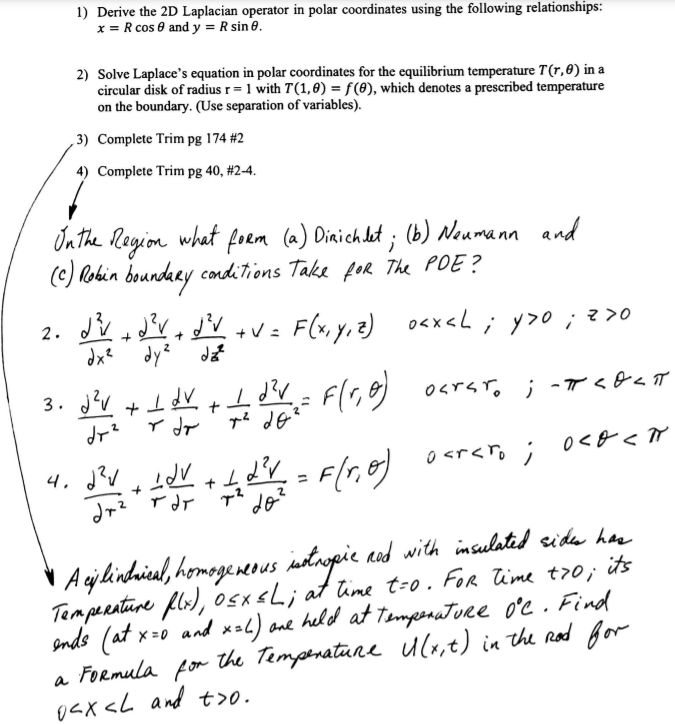 1) Derive the 2D Laplacian operator in polar coordinates using the following relationships:
x = R cos θ and y = R sin θ.
2) Solve Laplace's equation in polar coordinates for the equilibrium temperature T(r,θ) in a
circular disk of radius r = 1 with T(1,θ) = f(θ), which denotes a prescribed temperature
on the boundary. (Use separation of variables).
3) Complete Trim pg 174 #2
4) Complete Trim pg 40, #2-4.
In the Region what form (a) Dirichlet ; (b) Neumann and
(c) Robin boundary conditions Take for The PDE?
2. d²V/dx² + d²V/dy² + d²V/dz² + V = F(x,y,z) 0<x<L ; y>0 ; z>0
3. d²V/dr² + 1/r dV/dr + 1/r² d²V/dθ² = F(r,θ) 0<r<r₀ ; -π<θ<π
4. d²V/dr² + 1/r dV/dr + 1/r² d²V/dθ² = F(r,θ) 0<r<r₀ ; 0<θ<π
A cylindrical, homogeneous isotropic rod with insulated sides has
Temperature f(x), 0≤x≤L; at time t=0. For Time t>0; its
ends (at x=0 and x=L) are held at Temperature 0°C. Find
a Formula for the Temperature U(x,t) in the rod for
0<x<L and t>0.